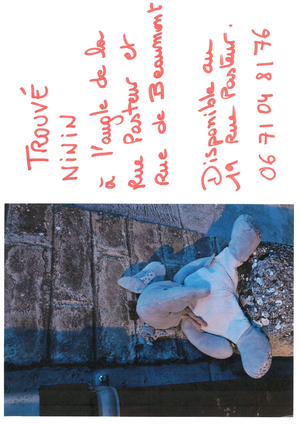 TROUVÉ
NININ
à l'angle de la
Rue Pasteur et
Rue de Beaumont
Disponible au
19 Rue Pasteur.
06 71 04 81 76